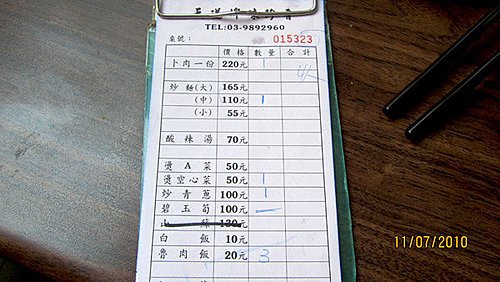 TEL:03-9892960
桌號： 015323
價格 數量 合計
卜肉一份 220元 1
炒麵(大) 165元
(中) 110元 1
(小) 55元
酸辣湯 70元
燙A菜 50元
燙空心菜 50元 1
炒青蔥 100元 1
碧玉筍 100元 一
130元
白飯 10元
魯肉飯 20元 3
11/07/2010